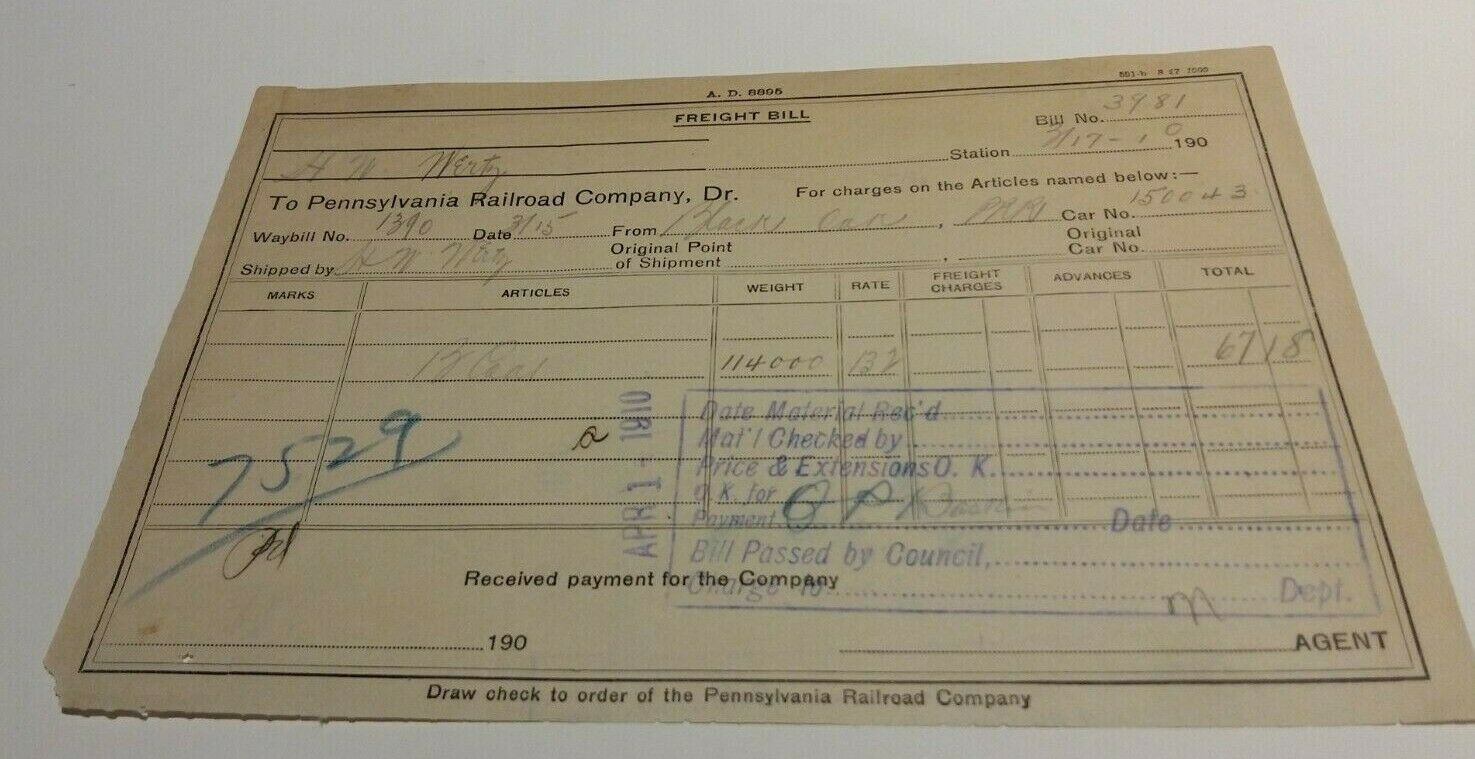 A. D. 8895
FREIGHT BILL
Bill No. 3981
H W Wertz
Station 3/17-10 190
To Pennsylvania Railroad Company, Dr. For charges on the Articles named below:—
Waybill No. 1390 Date 3/15 From , PRR Car No. 150043
Shipped by H W Wertz Original Point of Shipment , Original Car No.
MARKS ARTICLES WEIGHT RATE FREIGHT CHARGES ADVANCES TOTAL
Coal 114000 132 67 18
7529
APR 1 - 1910
Date Material Rec'd
Mat'l Checked by
Price & Extensions O. K.
O K. for Payment Date
Bill Passed by Council,
Charge To Dept.
Received payment for the Company
190 AGENT
Draw check to order of the Pennsylvania Railroad Company